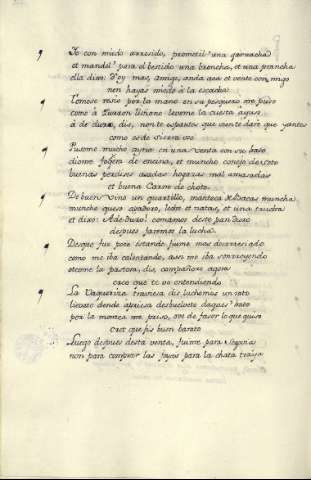 Yo con miedo arresido, prometil' una garnacha
et mandel' para el bestido una broncha, et una prancha
ella diz: Doy mas, amigo, anda aca et vente con migo
non hayas miedo a la escacha
Tomose resio por la mano en su pesquero me puso
como a Zurron liviano levome la cuesta ayuso
a de duro, dis, non te espantes que vente daré que yantes
como es de sierra uso
Pusome mucho ayna en una venta con su
diome fogera de encina, et muncho conejo de soto
buenas perdises asadas hogazas mal amasadas
et buena Carne de choto.
De buen vino un quartillo, manteca de Bacas muncha
muncho queso asadero, leche et natas, et una trucha
et dixo: Ade duro! comamos deste pan duro
después faremos la lucha.
Desque fue poco estando fuime mas desarresiedo
como me iba calentando, asi me iba sonrreyendo
oteome la pastora, dis, compañones agora
creo que te vo entendiendo
La Vaquerisa traviesa dis luchemos un rato
lievate dende apriesa desbuelvete daques' hato
por la moneca me priso, ove de faser lo que quiso
Creet que fis buen barato
Luego despues desta venta, fuime para Segovia
non para comprar las joyas para la chata traysa